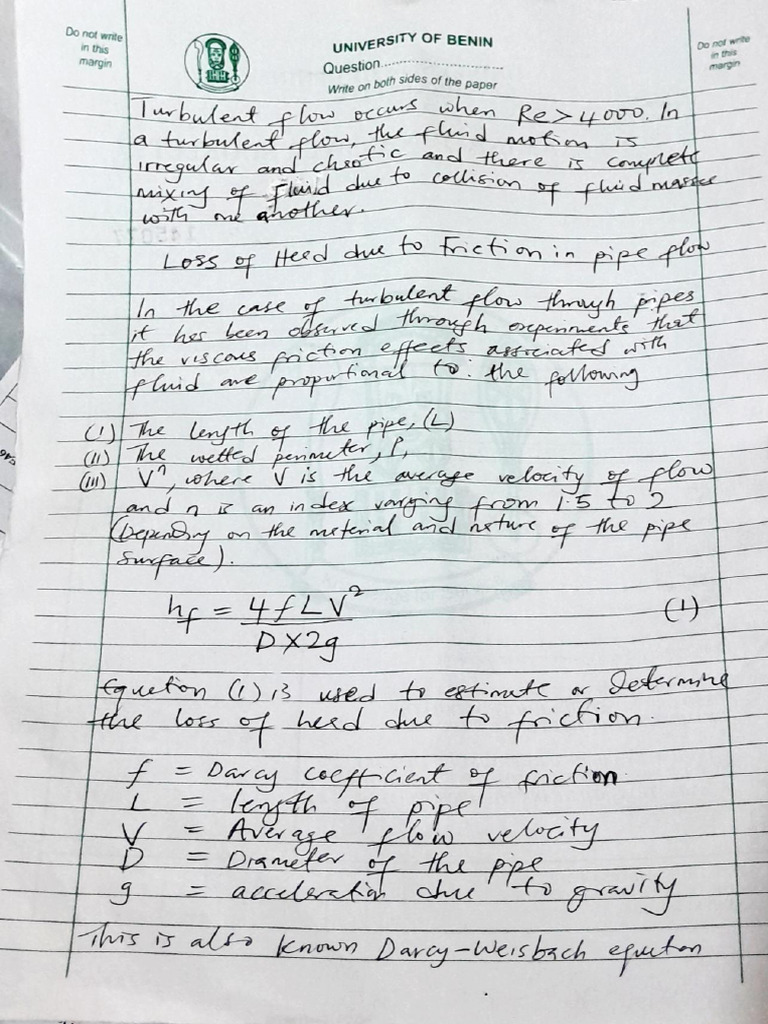 Do not write
in this
margin
UNIVERSITY OF BENIN
Question
Write on both sides of the paper
Do not write
in this
margin
Turbulent flow occurs when Re > 4000. In
a turbulent flow, the fluid motion is
irregular and chaotic and there is complete
mixing of fluid due to collision of fluid masses
with one another.
Loss of Head due to Friction in pipe flow
In the case of turbulent flow through pipes
it has been observed through experiments that
the viscous friction effects associated with
fluid are proportional to: the following
(i) The length of the pipe, (L)
(ii) The wetted perimeter, P,
(iii) Vⁿ, where V is the average velocity of flow
and n is an index varying from 1.5 to 2
(Depending on the material and nature of the pipe
surface).
hf = 4fLV² / D×2g (1)
Equation (1) is used to estimate or Determine
the loss of head due to friction.
f = Darcy coefficient of friction
L = length of pipe
V = Average flow velocity
D = Diameter of the pipe
g = acceleration due to gravity
This is also known Darcy-Weisbach equation